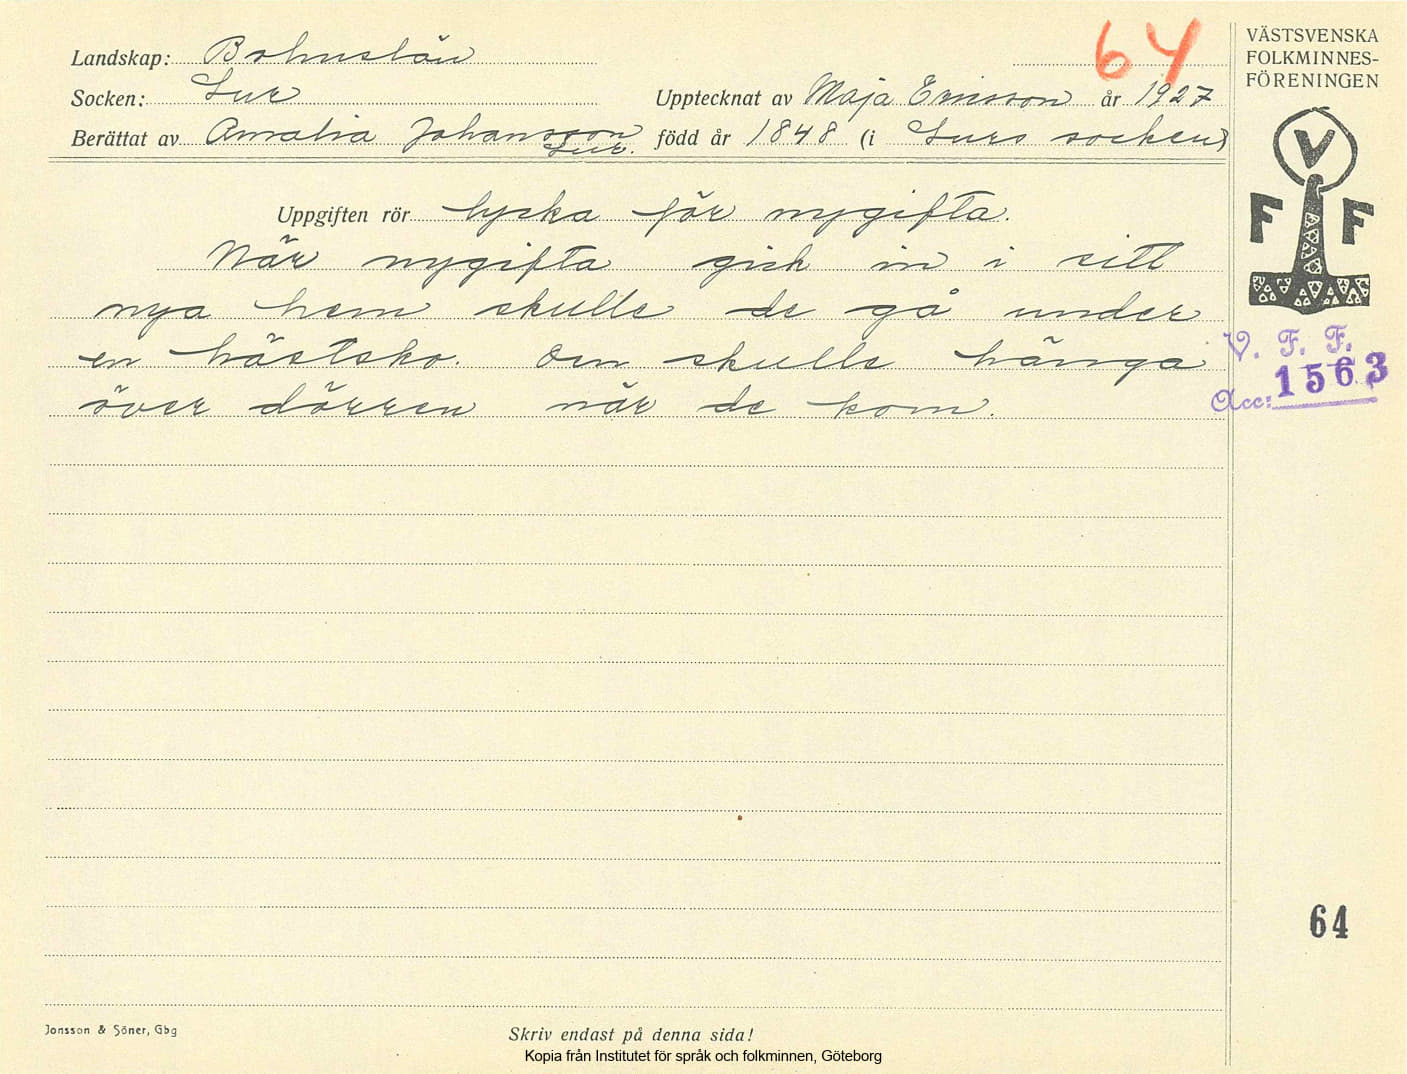 64
VÄSTSVENSKA
FOLKMINNES-
FÖRENINGEN
Landskap: Bohuslän
Socken: Lur
Upptecknat av Maja Ericsson år 1927
Berättat av Amalia Johansson Lur. född år 1848 (i Lurs socken)
V
F F
Uppgiften rör lycka för nygifta.
När nygifta gick in i sitt
nya hem skulle de gå under
en hästsko. Den skulle hänga
över dörren när de kom.
V. F. F.
Acc: 1563
64
Jonsson & Söner, Gbg
Skriv endast på denna sida!
Kopia från Institutet för språk och folkminnen, Göteborg